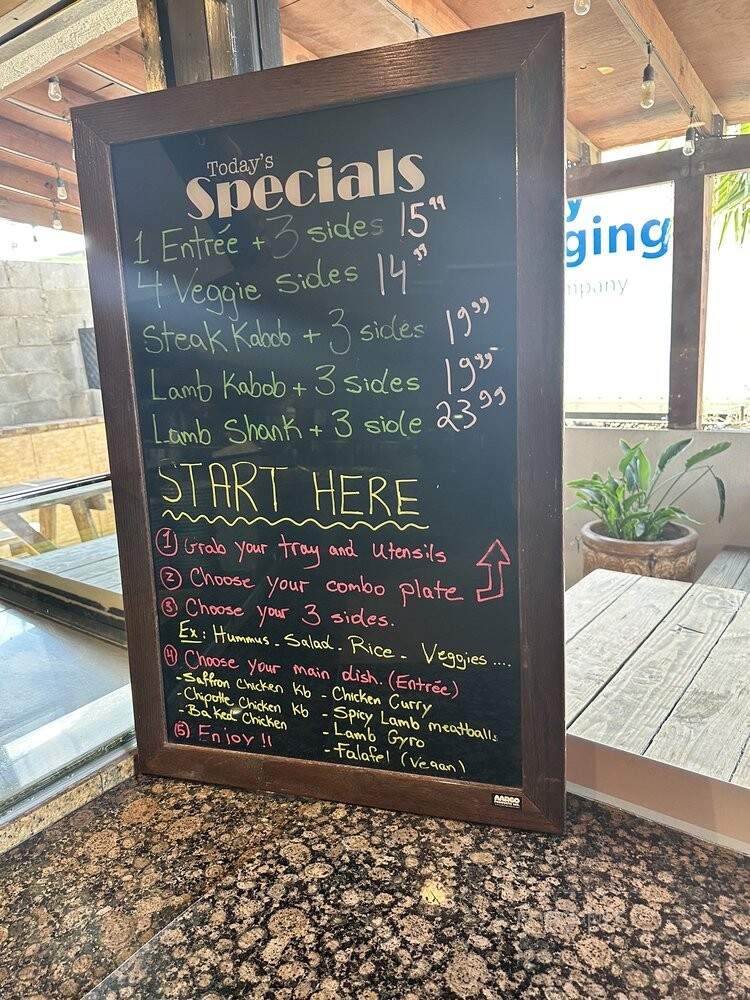 Today's
Specials
1 Entrée + 3 sides 15⁹⁹
4 Veggie sides 14⁹⁹
Steak Kabob + 3 sides 19⁹⁹
Lamb Kabob + 3 sides 19⁹⁹
Lamb Shank + 3 side 23⁹⁹
START HERE
① Grab your tray and utensils
② Choose your combo plate
③ Choose your 3 sides.
Ex: Hummus - Salad - Rice - Veggies ....
④ Choose your main dish. (Entrée)
- Saffron Chicken Kb
- Chipotle Chicken Kb
- Baked Chicken
- Chicken Curry
- Spicy Lamb meatballs
- Lamb Gyro
- Falafel (Vegan)
⑤ Enjoy !!
AARCO
y
ging
mpany